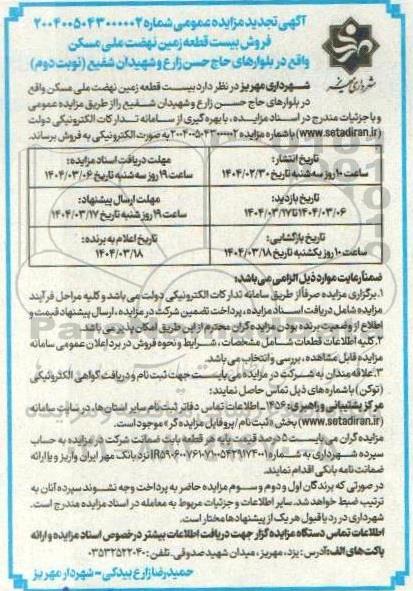 آگهی تجدید مزایده عمومی شماره ۲۰۰۴۰۰۵۰۴۳۰۰۰۰۰۲
فروش بیست قطعه زمین نهضت ملی مسکن
واقع در بلوارهای حاج حسن زارع و شهیدان شفیع (نوبت دوم)
شهرداری مهریز
شهرداری مهریز در نظر دارد بیست قطعه زمین نهضت ملی مسکن واقع
در بلوارهای حاج حسن زارع و شهیدان شفیع را از طریق مزایده عمومی
و با جزئیات مندرج در اسناد مزایده، با بهره گیری از سامانه تدارکات الکترونیکی دولت
(www.setadiran.ir) با شماره مزایده ۲۰۰۴۰۰۵۰۴۳۰۰۰۰۰۲ به صورت الکترونیکی به فروش برساند.
تاریخ انتشار:
ساعت ۱۰ روز سه شنبه تاریخ ۱۴۰۴/۰۲/۳۰
مهلت دریافت اسناد مزایده:
ساعت ۱۹ روز سه شنبه تاریخ ۱۴۰۴/۰۳/۰۶
تاریخ بازدید:
۱۴۰۴/۰۳/۰۶ تا ۱۴۰۴/۰۳/۱۷
مهلت ارسال پیشنهاد:
ساعت ۱۹ روز شنبه تاریخ ۱۴۰۴/۰۳/۱۷
تاریخ بازگشایی:
ساعت ۱۰ روز یکشنبه تاریخ ۱۴۰۴/۰۳/۱۸
تاریخ اعلام به برنده:
۱۴۰۴/۰۳/۱۸
ضمنا رعایت موارد ذیل الزامی می باشد:
۱. برگزاری مزایده صرفاً از طریق سامانه تدارکات الکترونیکی دولت می باشد و کلیه مراحل فرآیند
مزایده شامل دریافت اسناد مزایده، پرداخت تضمین شرکت در مزایده، ارسال پیشنهاد قیمت و
اطلاع از وضعیت برنده بودن مزایده گران محترم از این طریق امکان پذیر می باشد.
۲. کلیه اطلاعات قطعات شامل مشخصات، شرایط و نحوه فروش در برد اعلان عمومی سامانه
مزایده قابل مشاهده، بررسی و انتخاب می باشد.
۳. علاقه مندان به شرکت در مزایده می بایست جهت ثبت نام و دریافت گواهی الکترونیکی
(توکن) با شماره های ذیل تماس حاصل نمایند:
مرکز پشتیبانی و راهبری: ۱۴۵۶ - اطلاعات تماس دفاتر ثبت نام سایر استان ها، در سایت سامانه
(www.setadiran.ir) بخش «ثبت نام/پروفایل مزایده گر» موجود است.
مزایده گران می بایست ۵ درصد قیمت پایه هر قطعه بابت ضمانت شرکت در مزایده به حساب
سپرده شهرداری به شماره نزد بانک مهر ایران واریز و یا ارائه
ضمانت نامه بانکی اقدام نمایند.
در صورتی که برندگان اول و دوم و سوم مزایده حاضر به پرداخت وجه نشوند سپرده آنان به
ترتیب ضبط خواهد شد. سایر اطلاعات و جزئیات مربوط به معامله در اسناد مزایده مندرج است.
شهرداری در رد یا قبول هر یک از پیشنهادها مختار است.
اطلاعات تماس دستگاه مزایده گزار جهت دریافت اطلاعات بیشتر در خصوص اسناد مزایده و ارائه
پاکت های الف: آدرس: یزد، مهریز، میدان شهید صدوقی. تلفن: ۰۳۵۳۲۵۲۲۰۴۰
حمیدرضا زارع بیدکی - شهردار مهریز